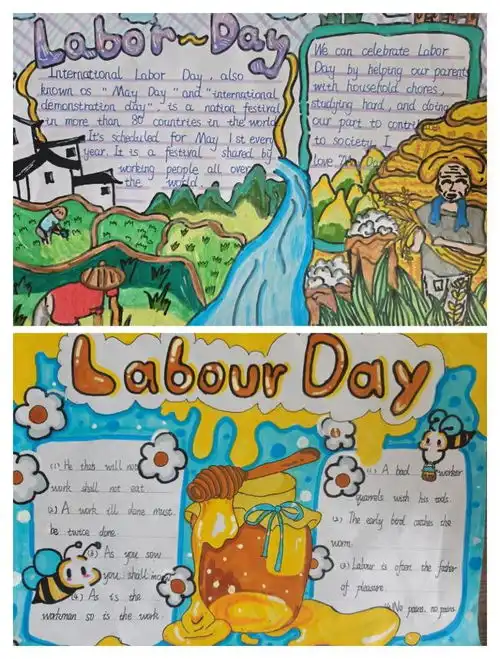 Labor-Day
International Labor Day, also
known as "May Day" and "international
demonstration day", is a nation festival
in more than 80 countries in the world
It's scheduled for May 1st every
year. It is a festival shared by
working people all over
the world
We can celebrate Labor
Day by helping our parents
with household chores,
studying hard, and doing
our part to contri
to society. I
love "May Da
Labour Day
(1) He that will not
work shall not eat
(2) A work ill done must
be twice done
(3) As you sow
you shall
(4) As is the
workman so is the work.
(1) A bad worker
quarrels wish his tools.
(2) The early bird catches the
worm.
(3) Labour is often the father
of pleasure.
No pains, no gains